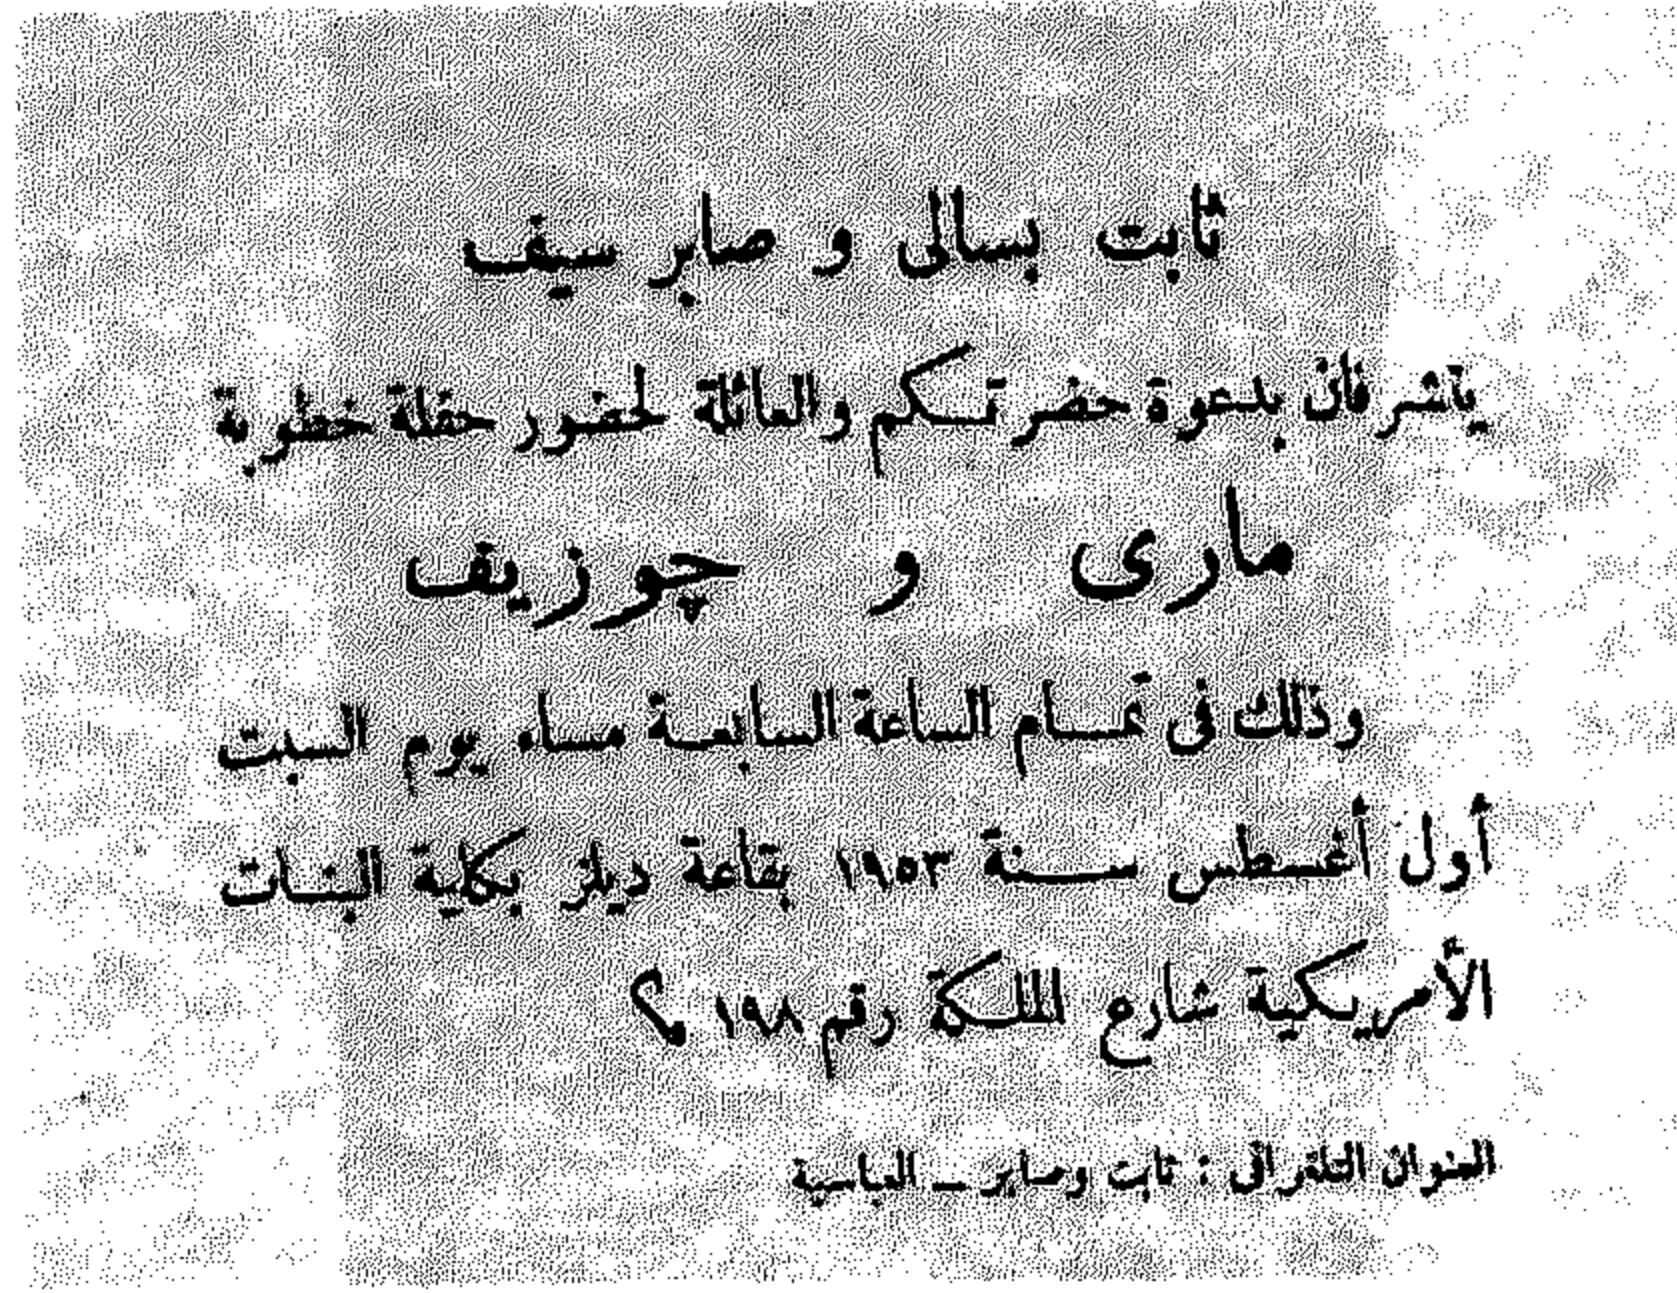 ثابت بسالى و صابر سيف
يتشرفان بدعوة حضرتكم والعائلة لحضور حفلة خطوبة
مارى و چوزيف
وذلك فى تمام الساعة السابعة مساء يوم السبت
أول أغسطس سنة ١٩٥٣ بقاعة ديلز بكلية البنات
الأمريكية شارع الملكة رقم ١٩٨
العنوان التلغرافى : ثابت وصابر ــ العباسية